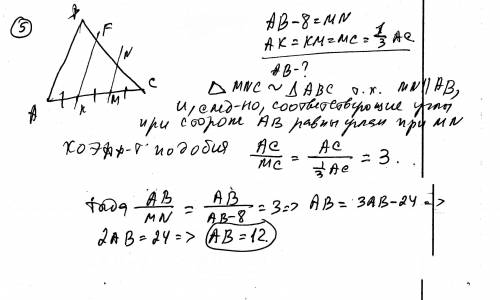 5
B
F
N
A
K
M
C
AB-8=MN
AK=KM=MC=1/3 AC
AB-?
△ MNC ~ △ ABC т.к. MN ∥ AB,
и, след-но, соответствующие углы
при стороне AB равны углам при MN
коэфф-т подобия AC/MC = AC/(1/3 AC) = 3.
тогда AB/MN = AB/(AB-8) = 3 => AB = 3AB-24 =>
2AB=24 => AB=12.